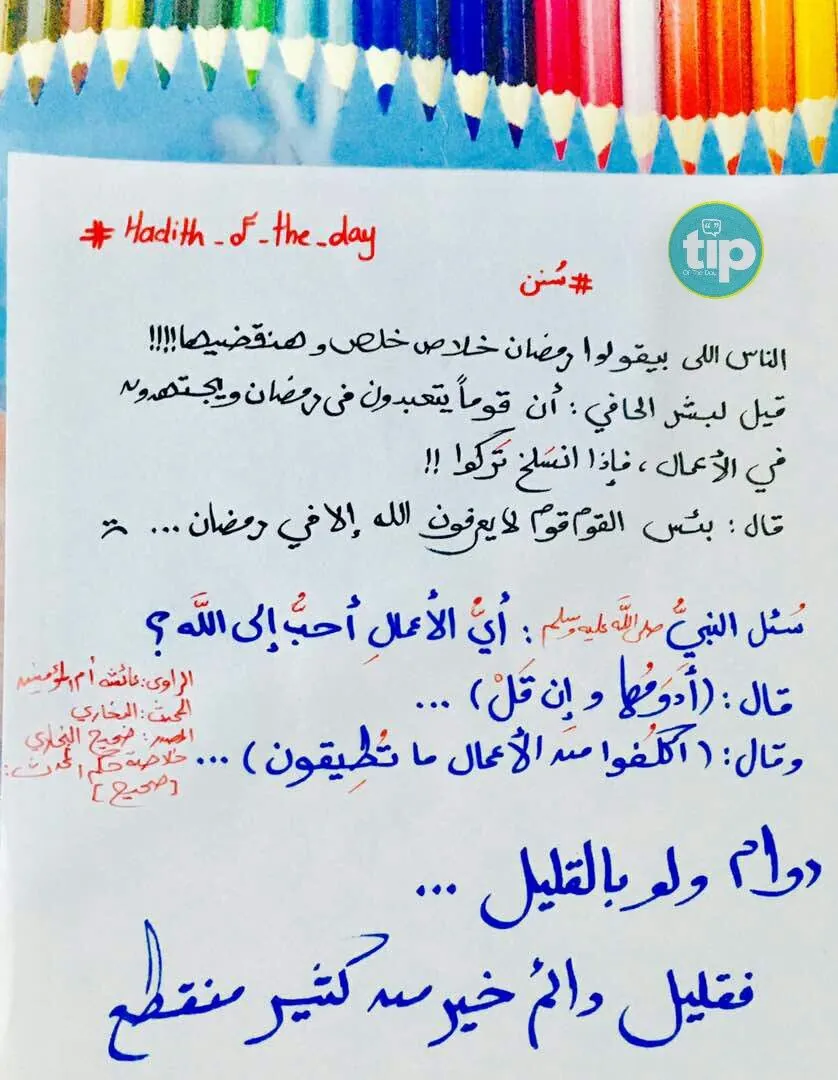 # Hadith_of_the_day
“ ”
tip
Of The Day
#سُنن
الناس اللى بيقولوا رمضان خلاص خلص و هنقضيها!!!!
قيل لبشر الحافي : أن قوماً يتعبدون فى رمضان ويجتهدون
في الأعمال ، فإذا انسَلخ تَركوا !!
قال : بئس القوم قوم لا يعرفون الله إلا في رمضان ...
سُئل النبيُّ صلى اللَّه عليه وسلم : أيُّ الأعمالِ أحبُّ إلى اللَّه ؟
قال : (أَدوَمُها و إن قَلْ) ...
وقال : ( اكلَفُوا من الأعمال ما تُطِيقون ) ...
الراوى : عائشه أم المؤمنين
المحدث : البخاري
المصدر : صحيح البخاري
خلاصة حكم المحدث :
[صحيح]
دوام ولو بالقليل ...
فقليل دائم خير من كثير منقطع